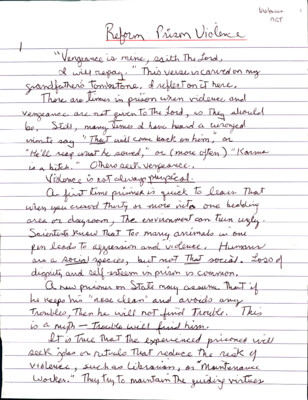 Reform Prison Violence
1
"Vengeance is mine, saith The Lord,
I will repay." This verse is carved on my
grandfather's tombstone, & I reflect on it here.
There are times in prison when violence and
vengeance are not given to the Lord, as They should
be. Still, many times I have heard a wronged
inmate say "That will come back on him," or
"He'll reap what he sowed," or (more often) "Karma
is a bitch." Others seek vengeance.
Violence is not always physical.
A first time prisoner is quick to learn That
when you crowd thirty or more into one bedding
area or dayroom, The environment can turn ugly.
Scientists know that Too many animals in one
pen leads to aggression and violence. Humans
are a social species, but not That social. Loss of
dignity and self-esteem in prison is common.
A new prisoner on State may assume That if
he keeps his "nose clean" and avoids any
troubles, Then he will not find Trouble. This
is a myth - Trouble will find him.
It is True that The experienced prisoner will
seek jobs or that reduce The risk of
violence, such as Librarian, or "Maintenance
Worker." They try to maintain the guiding virtues